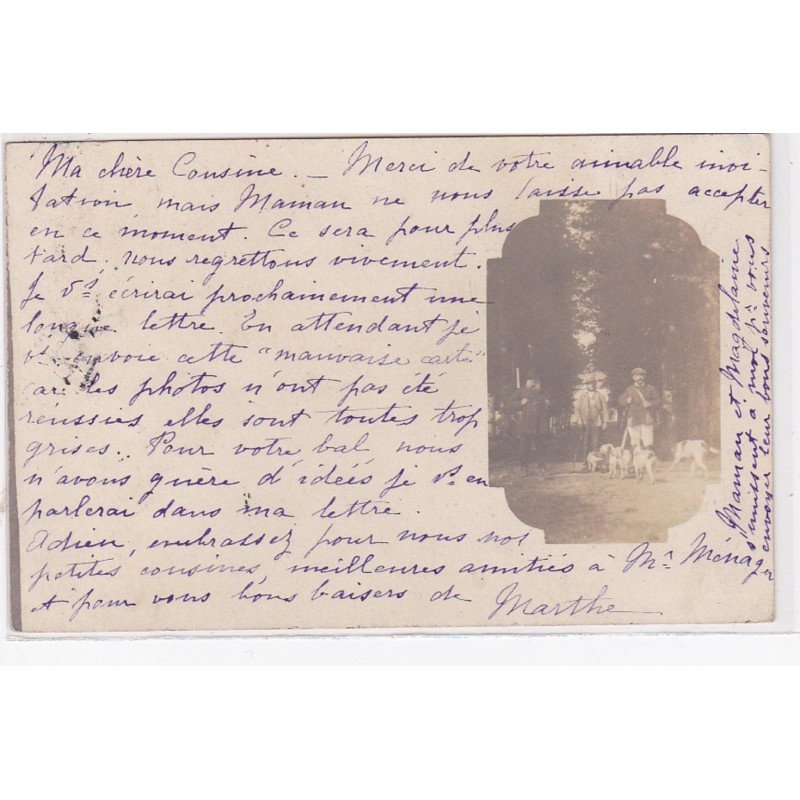 Ma chère Cousine. — Merci de votre aimable invi-
tation mais Maman ne nous laisse pas accepter
en ce moment. Ce sera pour plus
tard. nous regrettons vivement.
Je vs. écrirai prochainement une
longue lettre. En attendant je
vs envoie cette "mauvaise carte"
car les photos n'ont pas été
réussies elles sont toutes trop
grises.. Pour votre bal nous
n'avons guère d'idées je vs. en
parlerai dans ma lettre.
Adieu, embrassez pour nous nos
petites cousines, meilleures amitiés à Mr Ménager
et pour vous bons baisers de Marthe
Maman et Magdelaine
s'unissent à moi pr vous
envoyer leur bons souvenirs